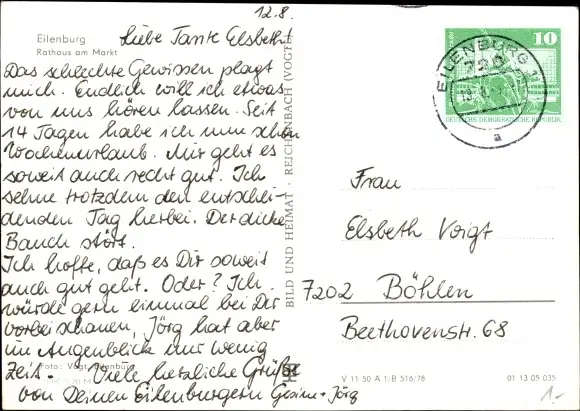 12.8.
Eilenburg
Rathaus am Markt
Liebe Tante Elsbeth!
Das schlechte Gewissen plagt
mich. Endlich will ich etwas
von uns hören lassen. Seit
14 Tagen habe ich nun schon
Wochenurlaub. Mir geht es
soweit auch recht gut. Ich
sehne trotzdem den entschei-
denden Tag herbei. Der dicke
Bauch stört.
Ich hoffe, daß es Dir soweit
auch gut geht. Oder? Ich
würde gern einmal bei Dir
vorbei schauen, Jörg hat aber
im Augenblick nur wenig
Zeit. Viele herzliche Grüße
von Deinen Eilenburgern Gesine + Jörg
Foto: Vogt, Eilenburg
BILD UND HEIMAT · REICHENBACH (VOGTL
EILENBURG 1
729
a
10
DEUTSCHE DEMOKRATISCHE REPUBLIK
Frau
Elsbeth Voigt
7202 Böhlen
Beethovenstr. 68
V 11 50 A 1/B 516/78
01 13 05 035
1.-